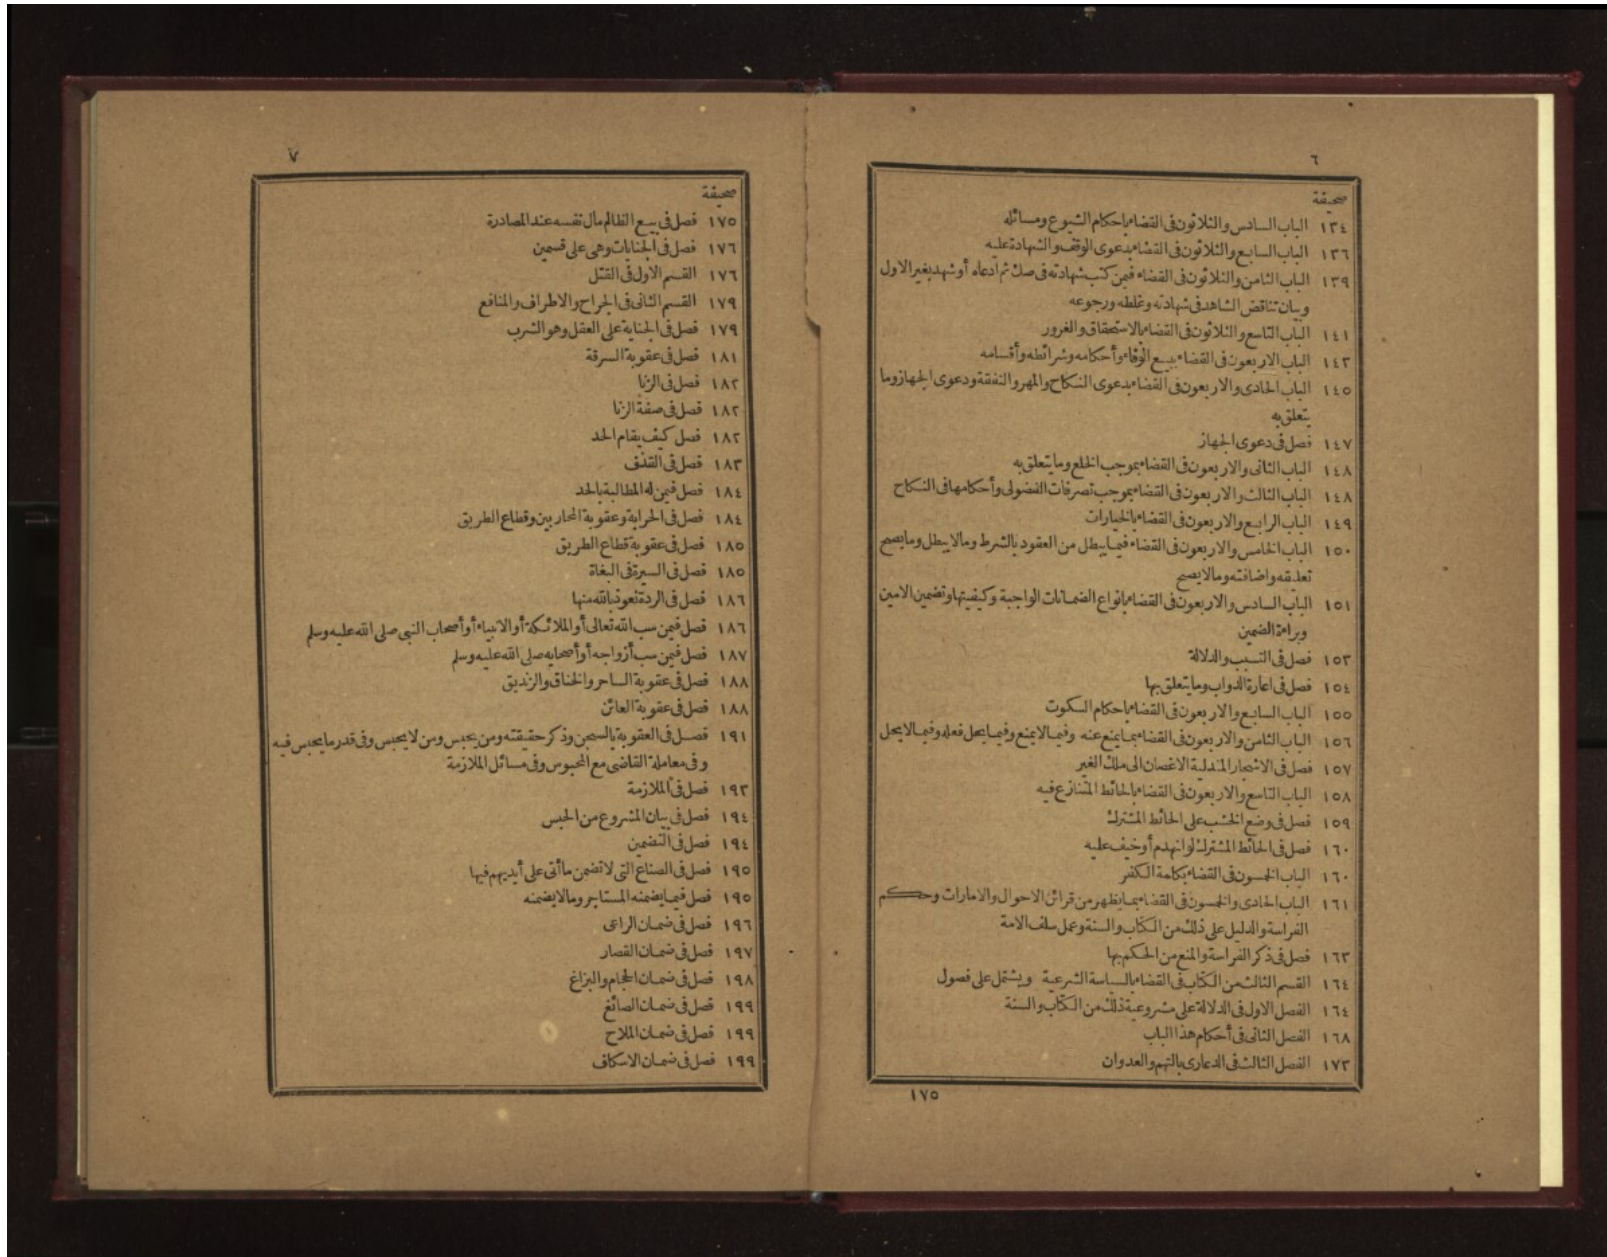 ٦
صحيفة
١٣٤ الباب السادس والثلاثون فى القضاء باحكام الشيوع ومسائله
١٣٦ الباب السابع والثلاثون فى القضاء بدعوى الوقف والشهادة عليه
١٣٩ الباب الثامن والثلاثون فى القضاء فيمن كتب شهادته فى صك ثم ادعاه أو شهد بغير الاول
وبيان تناقض الشاهد فى شهادته وغلطه ورجوعه
١٤١ الباب التاسع والثلاثون فى القضاء بالاستحقاق والغرور
١٤٣ الباب الاربعون فى القضاء ببيع الوفاء وأحكامه وشرائطه وأقسامه
١٤٥ الباب الحادى والاربعون فى القضاء بدعوى النكاح والمهر والنفقة ودعوى الجهاز وما
يتعلق به
١٤٧ فصل فى دعوى الجهاز
١٤٨ الباب الثانى والاربعون فى القضاء بموجب الخلع وما يتعلق به
١٤٨ الباب الثالث والاربعون فى القضاء بموجب تصرفات الفضولى وأحكامها فى النكاح
١٤٩ الباب الرابع والاربعون فى القضاء بالخيارات
١٥٠ الباب الخامس والاربعون فى القضاء فيما يبطل من العقود بالشرط وما لا يبطل وما يصح
تعليقه واضافته وما لا يصح
١٥١ الباب السادس والاربعون فى القضاء بانواع الضمانات الواجبة وكيفيتها وتضمين الامين
وبراءة الضمين
١٥٣ فصل فى التسبب والدلالة
١٥٤ فصل فى اعارة الدواب وما يتعلق بها
١٥٥ الباب السابع والاربعون فى القضاء باحكام السكوت
١٥٦ الباب الثامن والاربعون فى القضاء بما يمنع عنه وفيما لا يمنع وفيما يحل فعله وفيما لا يحل
١٥٧ فصل فى الاشجار المتدلية الاغصان الى ملك الغير
١٥٨ الباب التاسع والاربعون فى القضاء بالحائط المتنازع فيه
١٥٩ فصل فى وضع الخشب على الحائط المشترك
١٦٠ فصل فى الحائط المشترك لو انهدم أو خيف عليه
١٦٠ الباب الخمسون فى القضاء بكلمة الكفر
١٦١ الباب الحادى والخمسون فى القضاء بما يظهر من قرائن الاحوال والامارات وحكم
الفراسة والدليل على ذلك من الكتاب والسنة وعمل سلف الامة
١٦٣ فصل فى ذكر الفراسة والمنع من الحكم بها
١٦٤ القسم الثالث من الكتاب فى القضاء بالسياسة الشرعية ويشتمل على فصول
١٦٤ الفصل الاول فى الدلالة على مشروعية ذلك من الكتاب والسنة
١٦٨ الفصل الثانى فى أحكام هذا الباب
١٧٣ الفصل الثالث فى الدعاوى بالتهم والعدوان
١٧٥
٧
صحيفة
١٧٥ فصل فى بيع الظالم مال نفسه عند المصادرة
١٧٦ فصل فى الجنايات وهى على قسمين
١٧٦ القسم الاول فى القتل
١٧٩ القسم الثانى فى الجراح والاطراف والمنافع
١٧٩ فصل فى الجناية على العقل وهو الشرب
١٨١ فصل فى عقوبة السرقة
١٨٢ فصل فى الزنا
١٨٢ فصل فى صفة الزنا
١٨٢ فصل كيف يقام الحد
١٨٣ فصل فى القذف
١٨٤ فصل فيمن له المطالبة بالحد
١٨٤ فصل فى الحرابة وعقوبة المحاربين وقطاع الطريق
١٨٥ فصل فى عقوبة قطاع الطريق
١٨٥ فصل فى السيرة فى البغاة
١٨٦ فصل فى الردة نعوذ بالله منها
١٨٦ فصل فيمن سب الله تعالى أو الملائكة أو الانبياء أو أصحاب النبى صلى الله عليه وسلم
١٨٧ فصل فيمن سب أزواجه أو أصحابه صلى الله عليه وسلم
١٨٨ فصل فى عقوبة الساحر والخناق والزنديق
١٨٨ فصل فى عقوبة العائن
١٩١ فصل فى العقوبة بالسجن وذكر حقيقته ومن يحبس ومن لا يحبس وفى قدر ما يحبس فيه
وفى معاملة القاضى مع المحبوس وفى مسائل الملازمة
١٩٣ فصل فى الملازمة
١٩٤ فصل فى بيان المشروع من الحبس
١٩٤ فصل فى التضمين
١٩٥ فصل فى الصناع التى لا تضمن ما أتى على أيديهم فيها
١٩٥ فصل فيما يضمنه المستاجر وما لا يضمنه
١٩٦ فصل فى ضمان الراعى
١٩٧ فصل فى ضمان القصار
١٩٨ فصل فى ضمان الحجام والبزاغ
١٩٩ فصل فى ضمان الصائغ
١٩٩ فصل فى ضمان الملاح
١٩٩ فصل فى ضمان الاسكاف